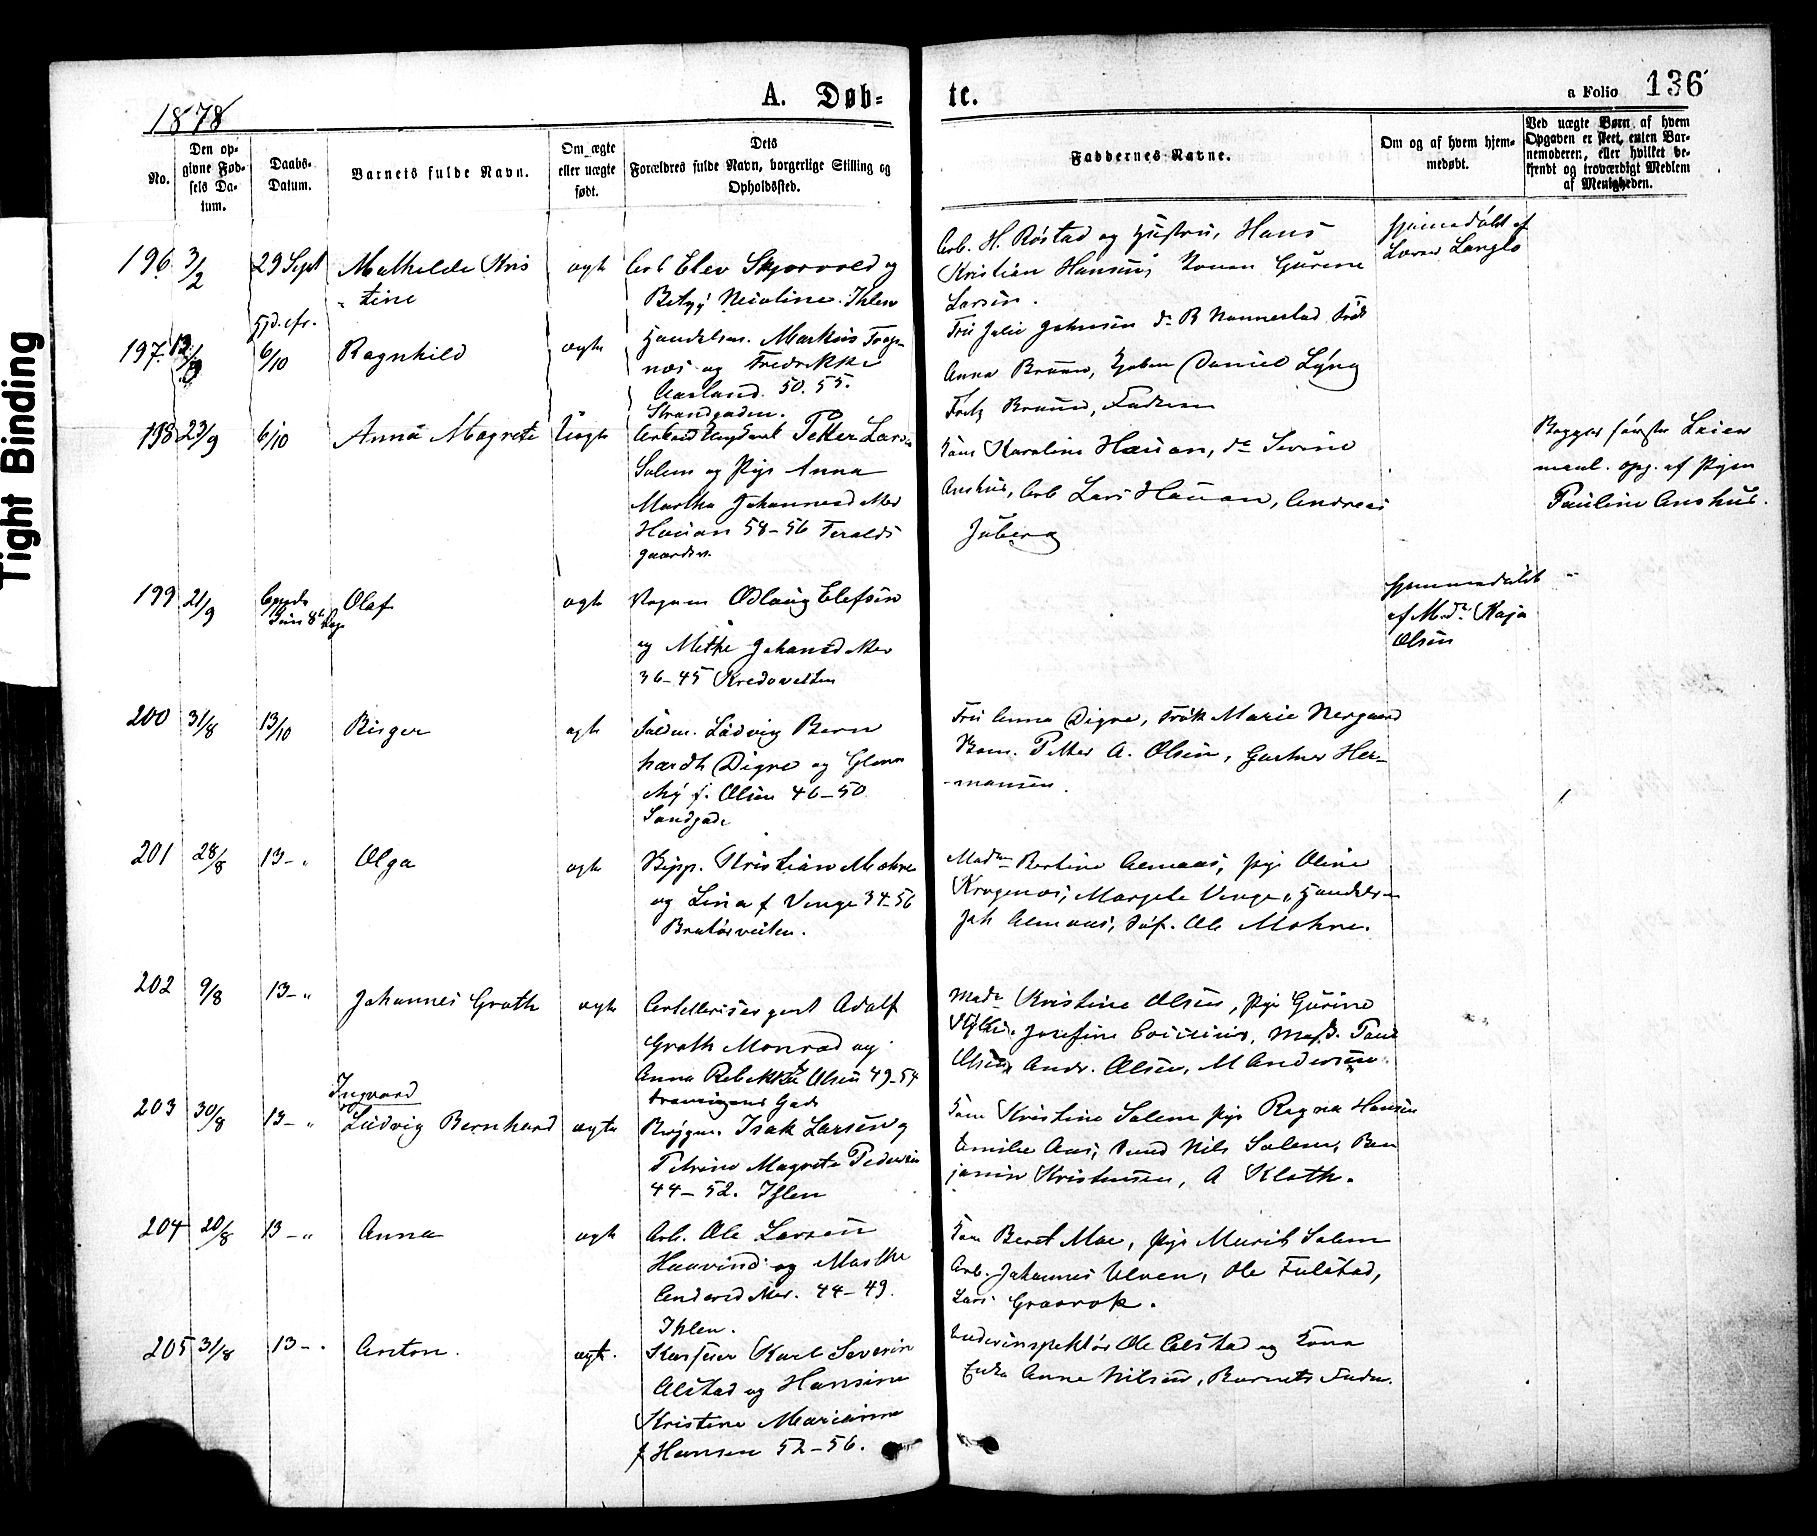 Tight Binding
1878
A. Døb-
te.
a Folio 136
No.
Den op-
givne Fød-
sels Da-
tum.
Daabs-
Datum.
Barnets fulde Navn.
Om ægte
eller uægte
født.
Dets
Forældres fulde Navn, borgerlige Stilling og
Opholdssted.
Faddernes Navne.
Om og af hvem hjem-
medøbt.
Ved uægte Børn, af hvem
Opgaven er skeet, enten Bar-
nemoderen, eller hvilket be-
kjendt og troværdigt Medlem
af Menigheden.
196 3/2 29 Sept Mathilde Kris
tine
ægte
Arb Elev Skjervold og
Betzy Nicoline Ihlen
Arb. H. Röstad og Hustru, Hans
Kristian Hansen, Konen Gurine
Larsen.
Hjemmedöbt af
Lorns Langlo
197 12/9 6/10 Ragnhild
ægte
Handelsm. Markus Trag-
næs og Fredrikke
Aarland. 50. 55.
Strandgaden.
Fru Julie Johnsen do B Nannestad Frök
Anna Bruun, Kjöbm Daniel Lyng
Fritz Bruun, Faderen
198 23/9 6/10 Anna Magrete
Uægte
Arbeid Ungkarl Petter Larsen
Salem og Pige Anna
Martha Johannesdatter
Hauan 58-56
gaardsv.
Kone Karoline Hauan, do Severine
Aashus, Arb Lars Hauan, Andreas
Juberg
opg. af Pigen
Pauline Aashus.
199 21/9
Olaf
ægte
Odlaug Elefsen
og Mette Johansdatter
36-45
Hjemmedöbt
af Mad. Kaja
Olsen
200 31/8 13/10 Birger
ægte
Ludvig Bern
hardt Digre og
f. Olsen 46-50
Sandgade
Fru Anna Digre, Frök Marie Nergaard
Petter A. Olsen, Gartner Her-
mansen.
201 28/8 13-" Olga
ægte
Kristian Mohne
og Lina f Venge 34-56
Bratörveiten.
Madm Bertine Almaas, Pige Oline
Kragenæs, Margete Venge, Handelsm
Joh Almaas, Söf. Ole Mohne.
202 9/8 13-" Johannes Groth
ægte
Artillerisergent Adolf
Groth Monrad og
Anna Rebekka f Olsen 49-54
Gade
Madm Kristine Olsen, Pige Gurine
Josefine
Olsen Andr. Olsen, M Andersen.
203 30/8 13-"
Ingvard
Ludvig Bernhard
ægte
Brygm. Isak Larsen og
Petrine Magrete Pedersen
44-52. Ihlen
Kone Kristine Salem Pige Ragna Hansen
Emilie Aas, Svend Nils Salem, Ben
jamin Kristensen, A Kloth.
204 20/8 13-" Anna
ægte
Arb. Ole Larsen
Haavind og Marthe
Andersdatter. 44-49.
Ihlen.
Kone Beret Moe, Pige Marit Salem
Arb. Johannes Ulven, Ole Fulstad,
Lars Graavok.
205 31/8 13-" Anton.
ægte.
Karl Severin
Alstad og Hansine
Kristine Marianne
f Hansen 52-56.
Underinspektör Ole Alstad og Kona
Enke Anne Nilsen, Barnets Fader.